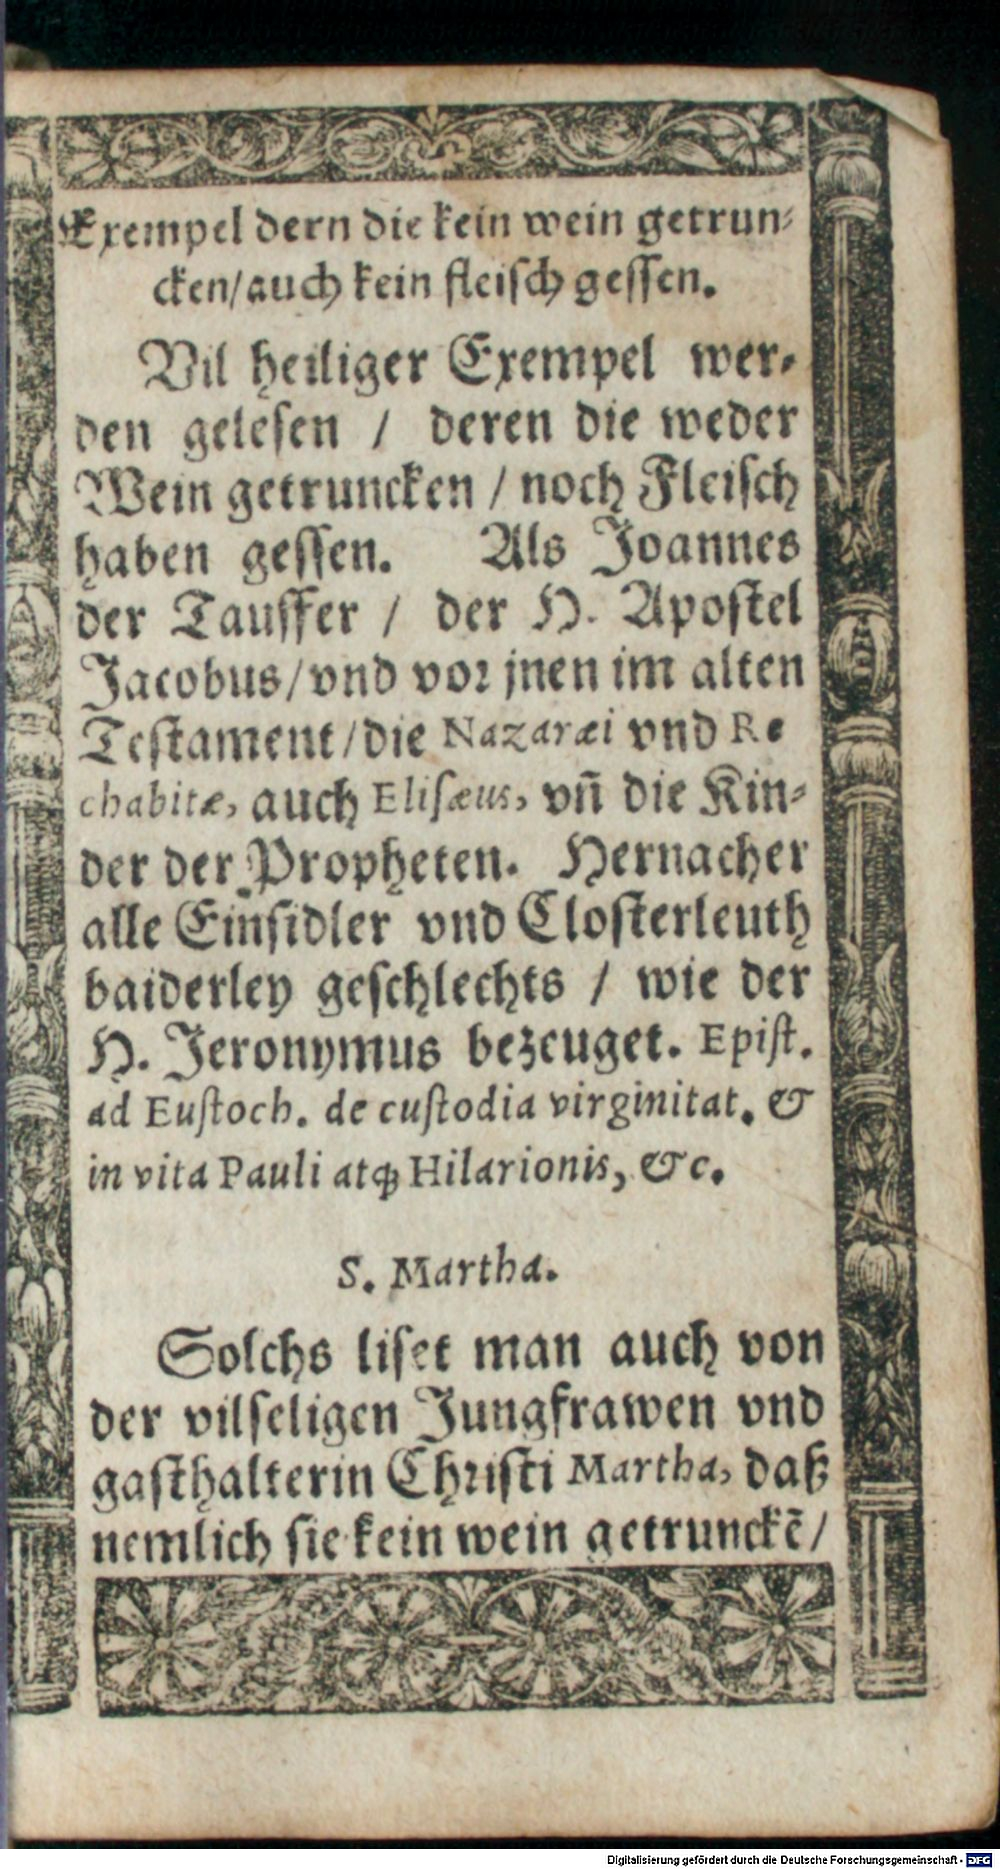 Exempel dern die kein wein getrun⸗
cken/auch kein fleisch gessen.
Vil heiliger Exempel wer⸗
den gelesen / deren die weder
Wein getruncken / noch Fleisch
haben gessen. Als Joannes
der Tauffer / der H. Apostel
Jacobus/vnd vor jnen im alten
Testament/die Nazaræi vnd Re
chabitæ, auch Elisæus, vñ die Kin⸗
der der Propheten. Hernacher
alle Einsidler vnd Closterleuth
baiderley geschlechts / wie der
H. Jeronymus bezeuget. Epist.
ad Eustoch. de custodia virginitat. &
in vita Pauli atq; Hilarionis, &c.
S. Martha.
Solchs liset man auch von
der vilseligen Jungfrawen vnd
gasthalterin Christi Martha, daß
nemlich sie kein wein getrunckē/
Digitalisierung gefördert durch die Deutsche Forschungsgemeinschaft - DFG